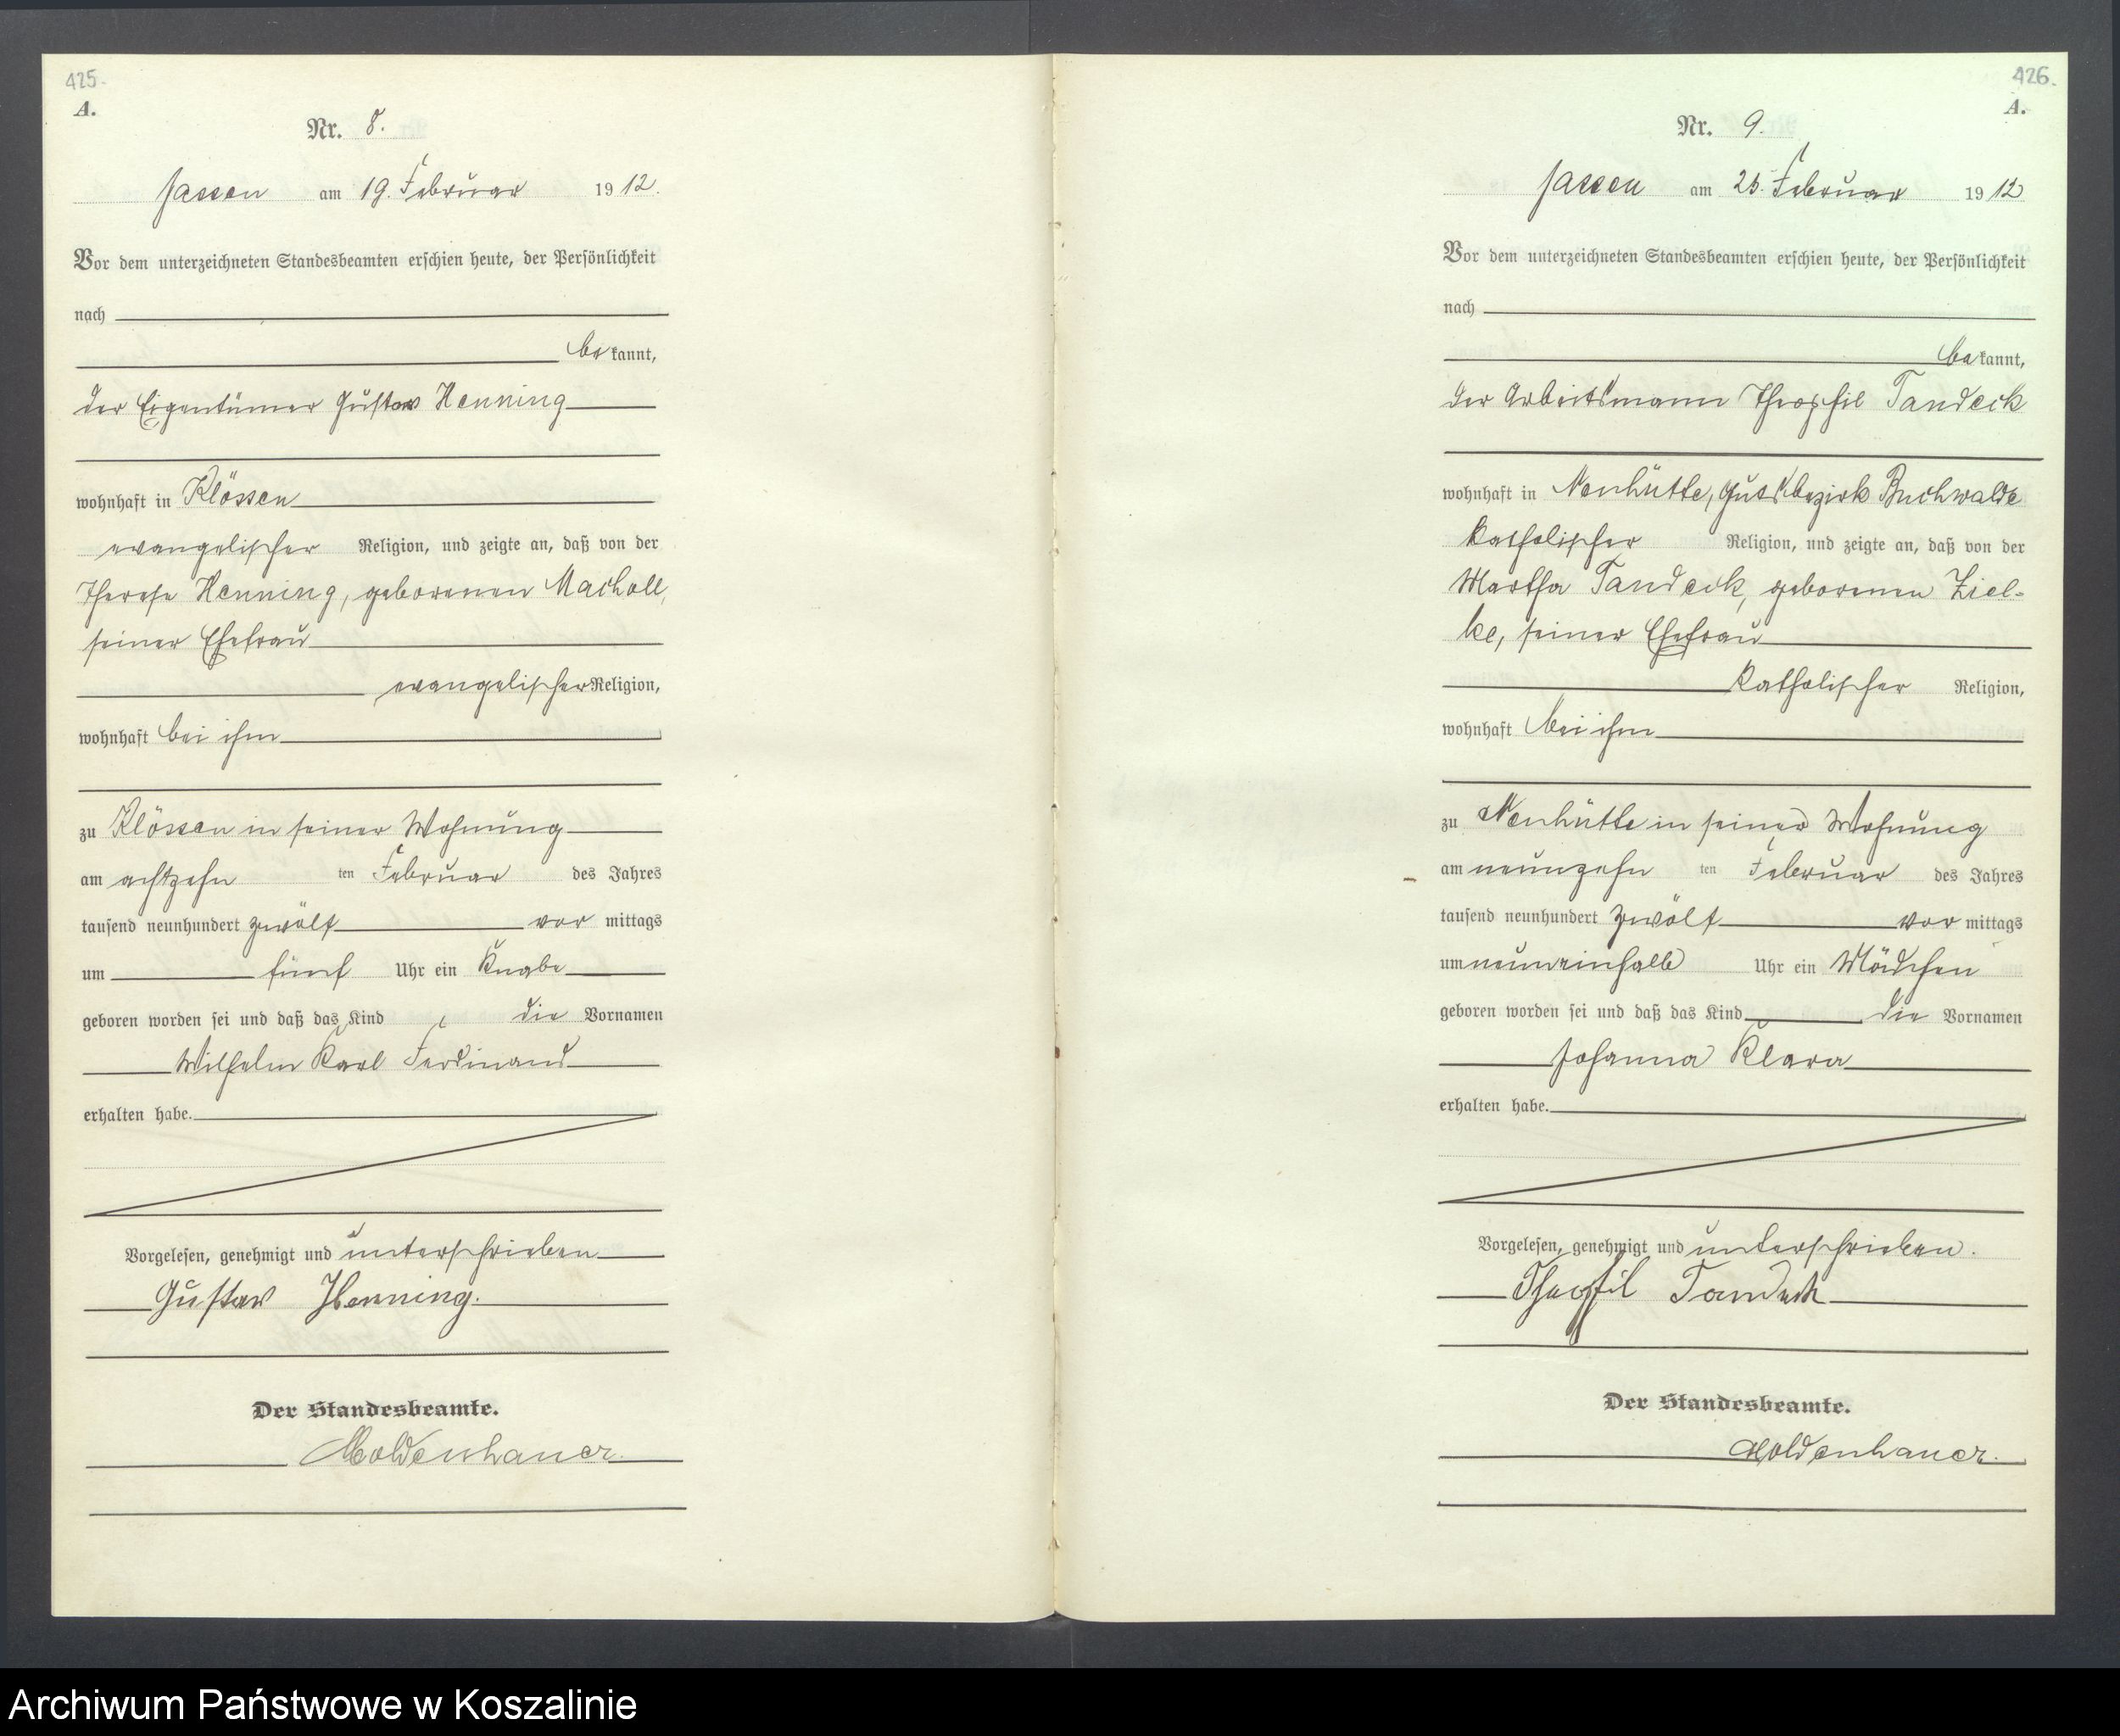 425.
A.
Nr. 8.
Jassen am 19. Februar 1912.
Vor dem unterzeichneten Standesbeamten erschien heute, der Persönlichkeit
nach
bekannt,
der Eigentümer Gustav Henning
wohnhaft in Klössen
evangelischer Religion, und zeigte an, daß von der
Therese Henning, geborenen Macholl,
seiner Ehefrau
evangelischer Religion,
wohnhaft bei ihm
zu Klössen in seiner Wohnung
am achtzehn ten Februar des Jahres
tausend neunhundert zwölf vor mittags
um fünf Uhr ein Knabe
geboren worden sei und daß das Kind die Vornamen
Wilhelm Karl Ferdinand
erhalten habe.
Vorgelesen, genehmigt und unterschrieben
Gustav Henning.
Der Standesbeamte.
Moldenhauer.
426.
A.
Nr. 9.
Jassen am 25. Februar 1912
Vor dem unterzeichneten Standesbeamten erschien heute, der Persönlichkeit
nach
bekannt,
der Arbeitsmann Theophil Tandeck
wohnhaft in Neuhütte, Gutsbezirk Buchwalde
katholischer Religion, und zeigte an, daß von der
Martha Tandeck, geborenen Ziel-
ke, seiner Ehefrau
katholischer Religion,
wohnhaft bei ihm
zu Neuhütte in seiner Wohnung
am neunzehn ten Februar des Jahres
tausend neunhundert zwölf vor mittags
um neuneinhalb Uhr ein Mädchen
geboren worden sei und daß das Kind die Vornamen
Johanna Klara
erhalten habe.
Vorgelesen, genehmigt und unterschrieben.
Theofil Tandek
Der Standesbeamte.
Moldenhauer.
Archiwum Państwowe w Koszalinie